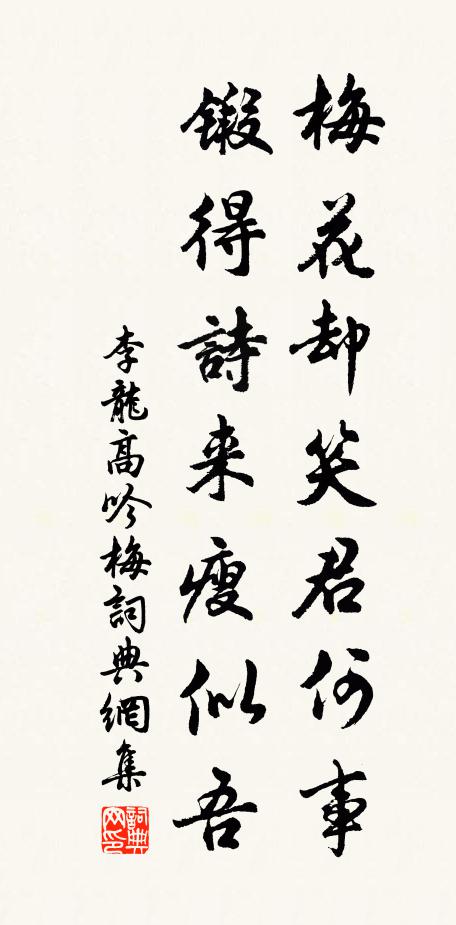 梅花却笑君何事
鍛得詩来瘦似吾
李龍高吟梅詞典網集
詞典网印